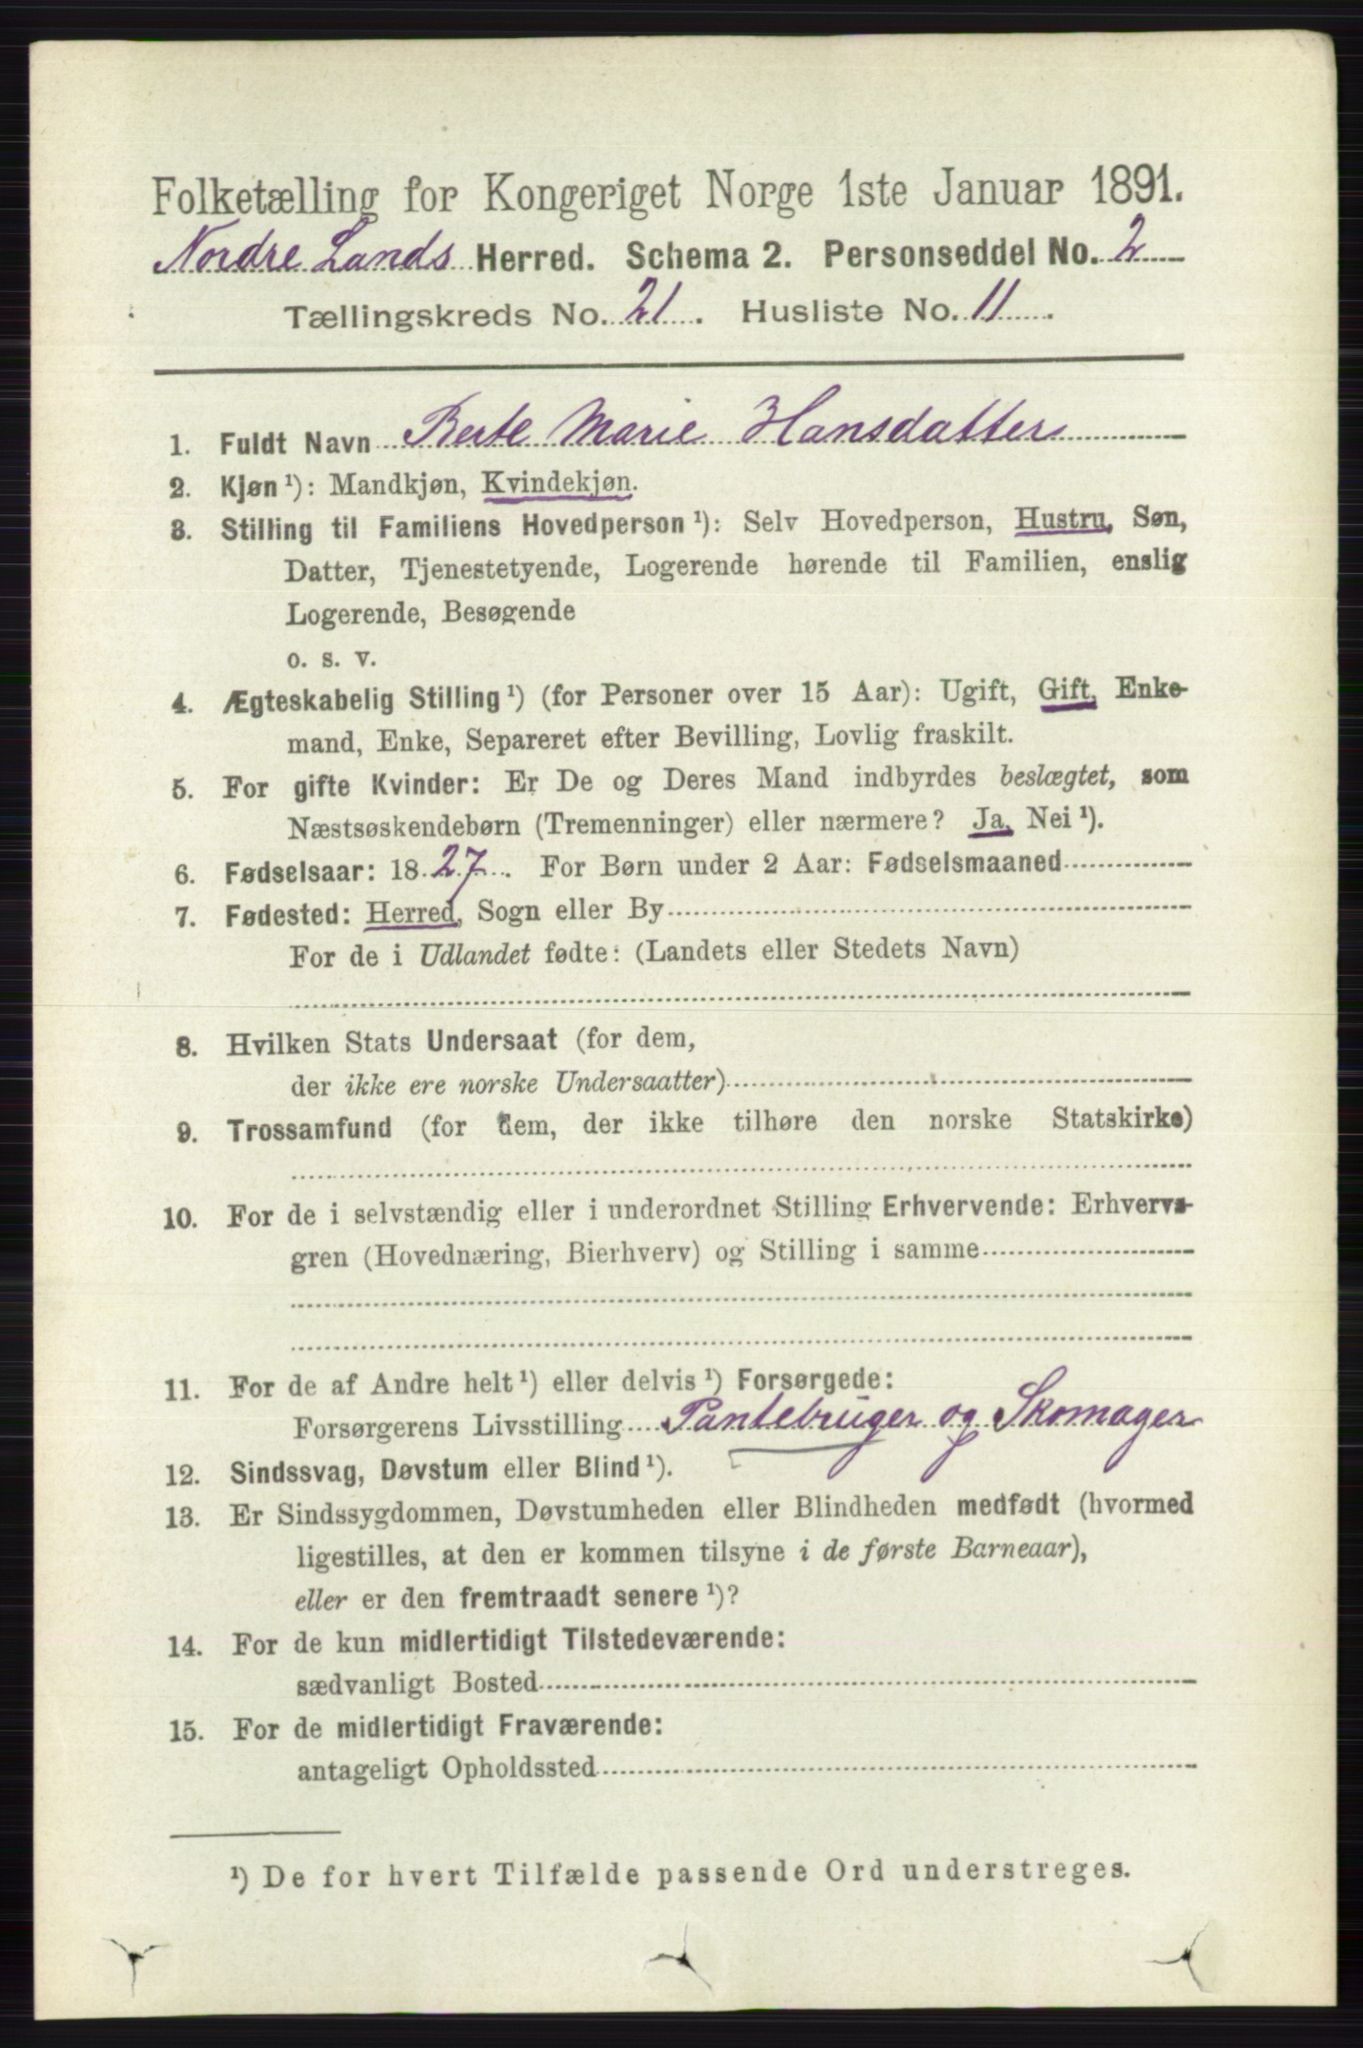 Folketælling for Kongeriget Norge 1ste Januar 1891.
Nordre Lands Herred. Schema 2. Personseddel No. 2
Tællingskreds No. 21. Husliste No. 11.
1. Fuldt Navn Berte Marie Hansdatter
2. Kjøn ¹): Mandkjøn, Kvindekjøn.
3. Stilling til Familiens Hovedperson ¹): Selv Hovedperson, Hustru, Søn,
Datter, Tjenestetyende, Logerende hørende til Familien, enslig
Logerende, Besøgende
o. s. v.
4. Ægteskabelig Stilling ¹) (for Personer over 15 Aar): Ugift, Gift, Enke-
mand, Enke, Separeret efter Bevilling, Lovlig fraskilt.
5. For gifte Kvinder: Er De og Deres Mand indbyrdes beslægtet, som
Næstsøskendebørn (Tremenninger) eller nærmere? Ja, Nei ¹).
6. Fødselsaar: 1827. For Børn under 2 Aar: Fødselsmaaned
7. Fødested: Herred, Sogn eller By
For de i Udlandet fødte: (Landets eller Stedets Navn)
8. Hvilken Stats Undersaat (for dem,
der ikke ere norske Undersaatter)
9. Trossamfund (for dem, der ikke tilhøre den norske Statskirke)
10. For de i selvstændig eller i underordnet Stilling Erhvervende: Erhvervs-
gren (Hovednæring, Bierhverv) og Stilling i samme
11. For de af Andre helt ¹) eller delvis ¹) Forsørgede:
Forsørgerens Livsstilling Pantebruger og Skomager
12. Sindssvag, Døvstum eller Blind ¹).
13. Er Sindssygdommen, Døvstumheden eller Blindheden medfødt (hvormed
ligestilles, at den er kommen tilsyne i de første Barneaar),
eller er den fremtraadt senere ¹)?
14. For de kun midlertidigt Tilstedeværende:
sædvanligt Bosted
15. For de midlertidigt Fraværende:
antageligt Opholdssted
¹) De for hvert Tilfælde passende Ord understreges.